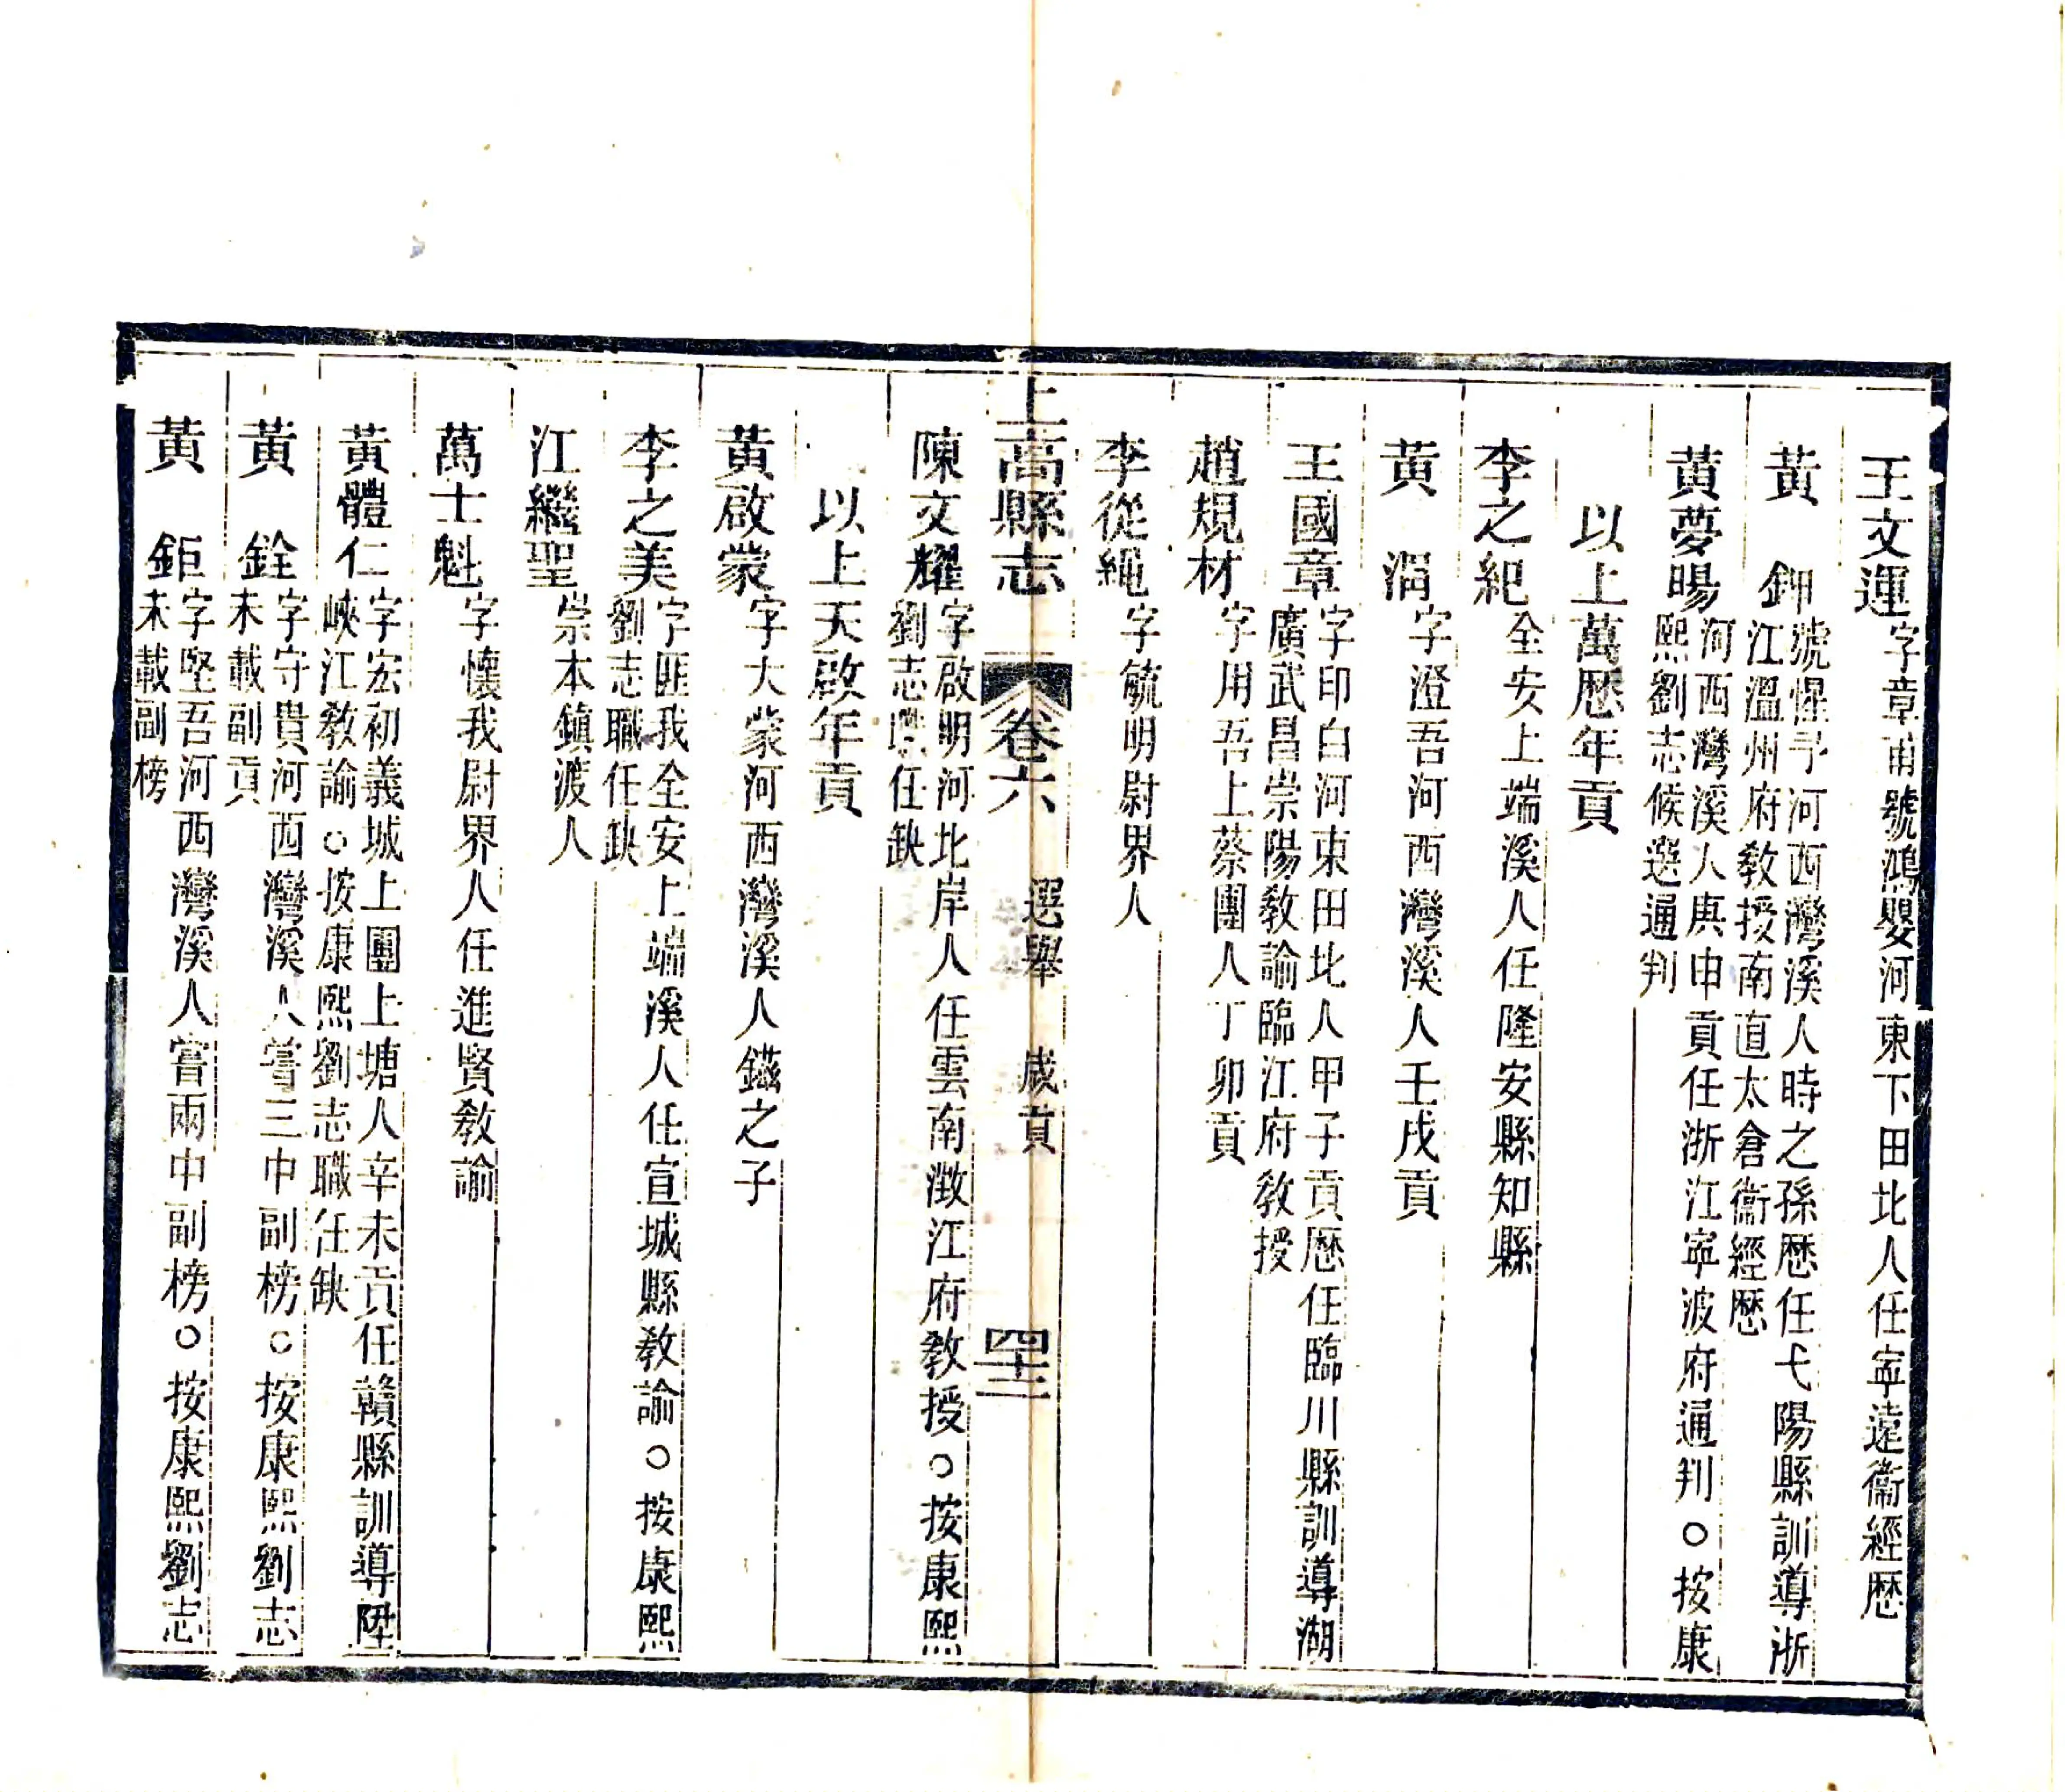 王文運字章甫號鴻嬰河東下田北人任寧遠衞經歷
黃　鉀號惺予河西灣溪人時之孫歷任弋陽縣訓導浙
江溫州府教授南直太倉衞經歷
黃夢暘河西灣溪人庚申貢任浙江寧波府通判○按康
熙劉志候選通判
以上萬歷年貢
李之紀全安上端溪人任隆安縣知縣
黃　涓字澄吾河西灣溪人壬戌貢
王國章字印白河東田北人甲子貢歷任臨川縣訓導湖
廣武昌崇陽教諭臨江府教授
趙規材字用吾上蔡團人丁卯貢
李從繩字毓明尉界人
上高縣志　卷六　選舉　歲貢　四十二
陳文耀字啟明河北岸人任雲南澂江府教授○按康熙
劉志職任缺
以上天啟年貢
黃啟蒙字大蒙河西灣溪人鎡之子
李之美字匪我全安上端溪人任宣城縣教諭○按康熙
劉志職任缺
江繼聖崇本鎮渡人
萬士魁字懷我尉界人任進賢教諭
黃體仁字宏初義城上團上塘人辛未貢任贛縣訓導陞
峽江教諭○按康熙劉志職任缺
黃　銓字守貴河西灣溪人嘗三中副榜○按康熙劉志
未載副貢
黃　鉅字堅吾河西灣溪人嘗兩中副榜○按康熙劉志
未載副榜